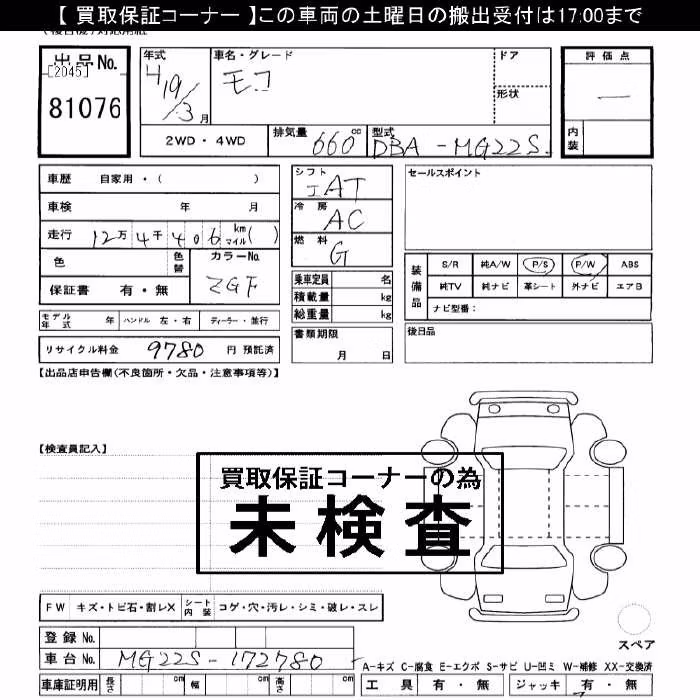 【 買取保証コーナー 】この車両の土曜日の搬出受付は17:00まで
出品No.
[2045]
81076
年式
H19/3月
車名・グレード
モコ
ドア
形状
評価点
―
内装
2WD・4WD
排気量 660 cc
型式 DBA-MG22S.
車歴 自家用・( )
車検 年 月
走行 12万4千406 km マイル( )
色 色替 カラーNo. ZGF
保証書 有・無
モデル年式 年 ハンドル 左・右 ディーラー・並行
リサイクル料金 9780 円 預託済
シフト IAT
冷房 AC
燃料 G
乗車定員 名
積載量 kg
総重量 kg
書類期限
月 日
セールスポイント
装備品
S/R 純A/W P/S P/W ABS
純TV 純ナビ 革シート 外ナビ エアB
ナビ型番:
後日品
【出品店申告欄(不良箇所・欠品・注意事項等)】
【検査員記入】
買取保証コーナーの為
未検査
FW キズ・トビ石・割レX シート内装 コゲ・穴・汚レ・シミ・破レ・スレ
登録No.
車台No. MG22S-172780
車庫証明用 長さ cm 幅 cm 高さ cm
スペア
A-キズ C-腐食 E-エクボ S-サビ U-凹ミ W-補修 XX-交換済
工具 有・無 ジャッキ 有・無